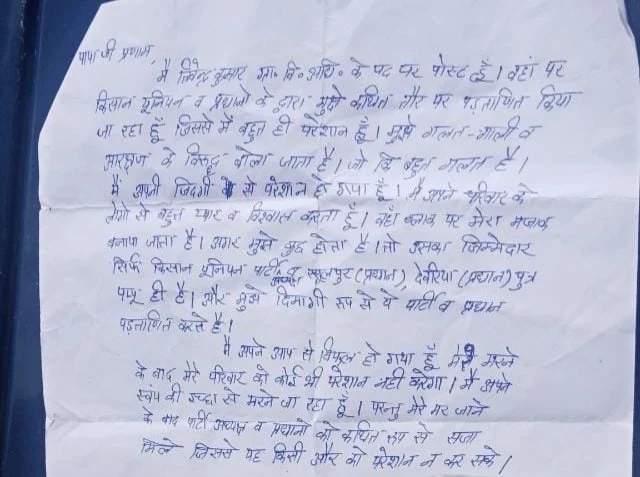 पापा जी प्रणाम,
मै जितेन्द्र कुमार ग्रा॰ वि॰ अधि॰ के पद पर पोस्ट हूँ। वहां पर
किसान यूनियन व प्रधानो के द्वारा मुझे कथित तौर पर पड़ताणित किया
जा रहा हूँ जिससे मै बहुत ही परेशान हूँ। मुझे गलत-गाली व
के विरुद्ध बोला जाता है। जो कि बहुत गलत है।
मैं अपनी जिदगी से परेशान हो गया हूँ। मै अपने परिवार के
लोगो से बहुत प्यार व विश्वास करता हूँ। वहाँ ब्लाक पर मेरा मजाक
बनाया जाता है। अगर मुझे कुछ होता है। तो उसका जिम्मेदार
सिर्फ किसान यूनियन पार्टी अध्यक्ष व (प्रधान), देवरिया (प्रधान) पुत्र
पप्पू ही है। और मुझे दिमागी रूप से ये पार्टी व प्रधान
पड़ताणित करते है।
मै अपने आप से विफल हो गया हूँ मेरे मरने
के बाद मेरे परिवार को कोई भी परेशान नही करेगा। मै अपने
स्वंय की इच्छा से मरने जा रहा हूँ। परन्तु मेरे मर जाने
के बाद पार्टी अध्यक्ष व प्रधानो को कथित रूप से सजा
मिले जिससे यह किसी और को परेशान न कर सके।